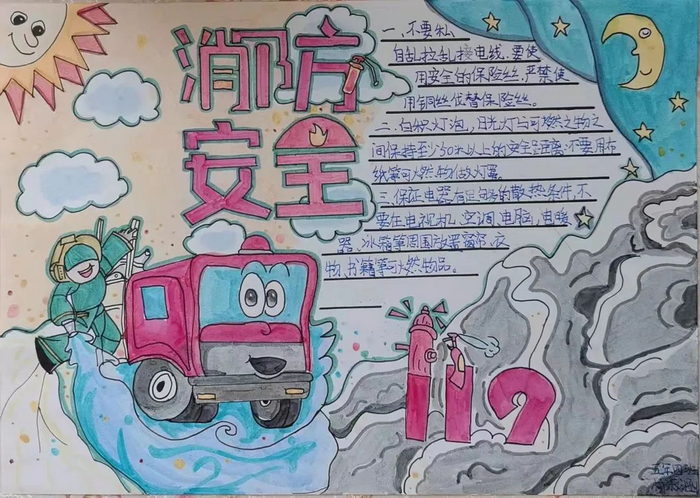 消防
安全
一、不要私
自乱拉乱接电线.要使
用安全的保险丝,严禁使
用铜丝代替保险丝。
二、白炽灯泡,日光灯与可燃之物之
间保持至少50cm以上的安全距离.不要用布
纸等可燃物做灯罩。
三、保证电器有足够的散热条件,不
要在电视机,空调,电脑,电暖
器、冰箱等周围放置窗帘、衣
物、书籍等可燃物品。
119
五年四班